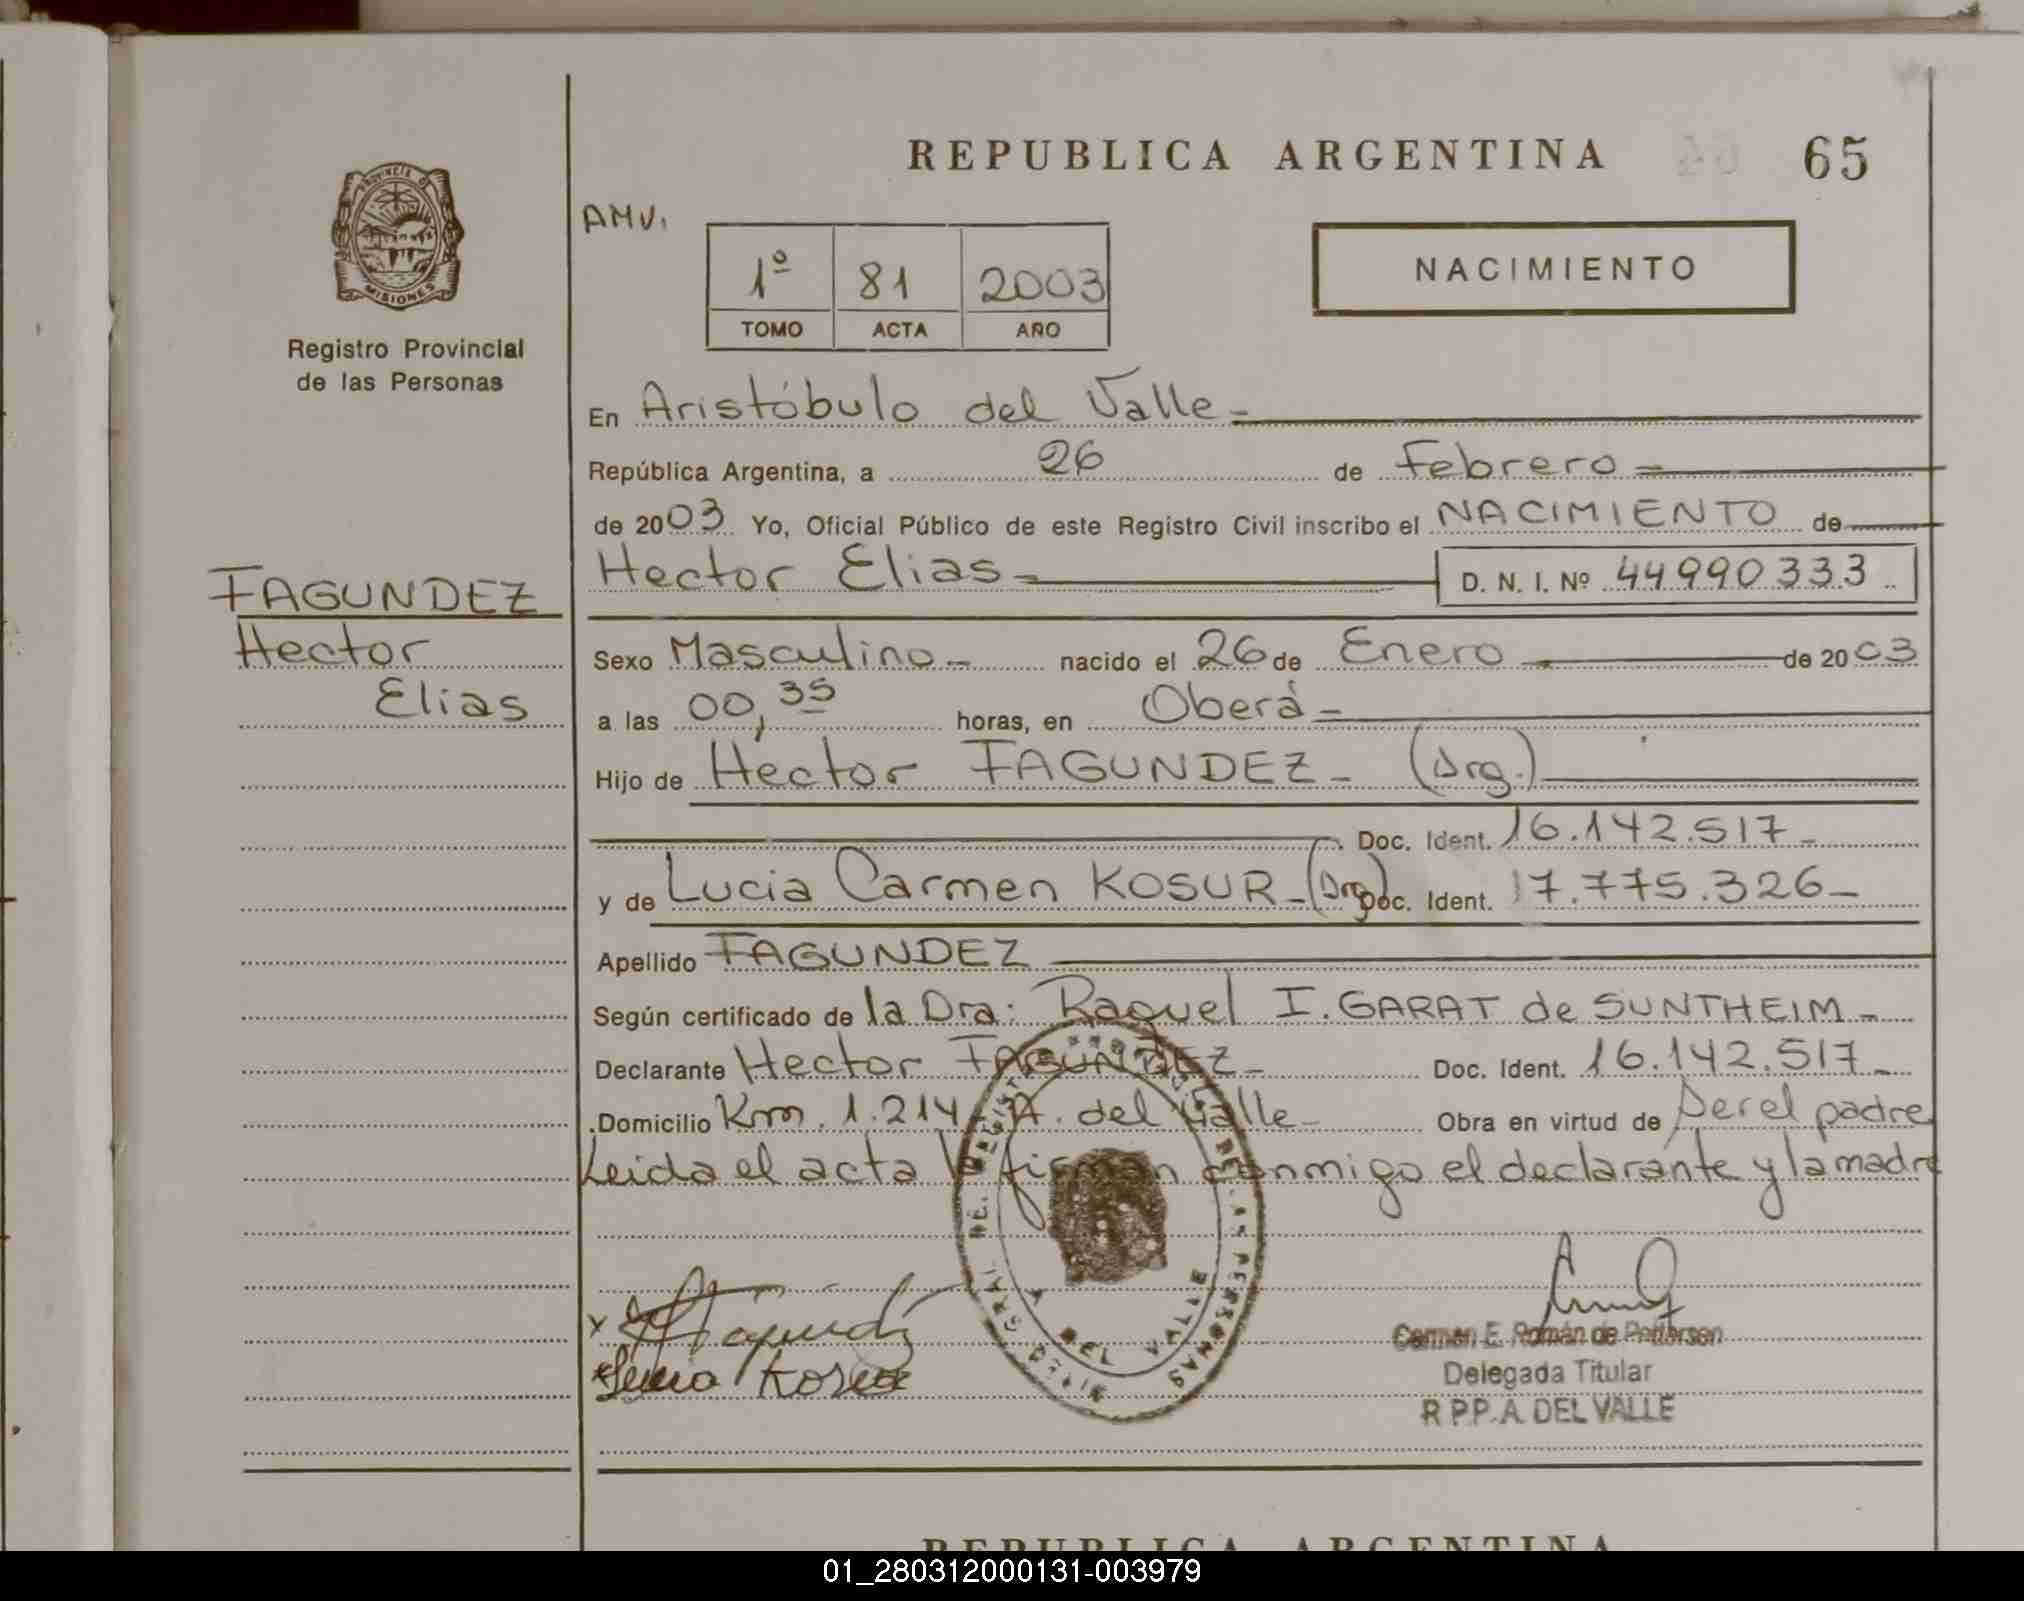 REPUBLICA ARGENTINA 65
PROVINCIA DE
MISIONES
Registro Provincial
de las Personas
AMV.
1º 81 2003
TOMO ACTA AÑO
NACIMIENTO
En Aristóbulo del Valle
República Argentina, a 26 de Febrero
de 2003 Yo, Oficial Público de este Registro Civil inscribo el NACIMIENTO de
Hector Elias D. N. I. Nº 44990333
FAGUNDEZ
Hector
Elias
Sexo Masculino nacido el 26 de Enero de 2003
a las 00,35 horas, en Oberá
Hijo de Hector FAGUNDEZ (Arg.)
Doc. Ident. 16.142.517
y de Lucia Carmen KOSUR (Arg) Doc. Ident. 17.775.326
Apellido FAGUNDEZ
Según certificado de la Dra: Raquel I. GARAT de SUNTHEIM
Declarante Hector FAGUNDEZ Doc. Ident. 16.142.517
Domicilio Km. 1.214 A. del Valle Obra en virtud de ser el padre
Leida el acta firman conmigo el declarante y la madre
Carmen E. Román de
Delegada Titular
R.P.P. A. DEL VALLE
REPUBLICA ARGENTINA
01_280312000131-003979